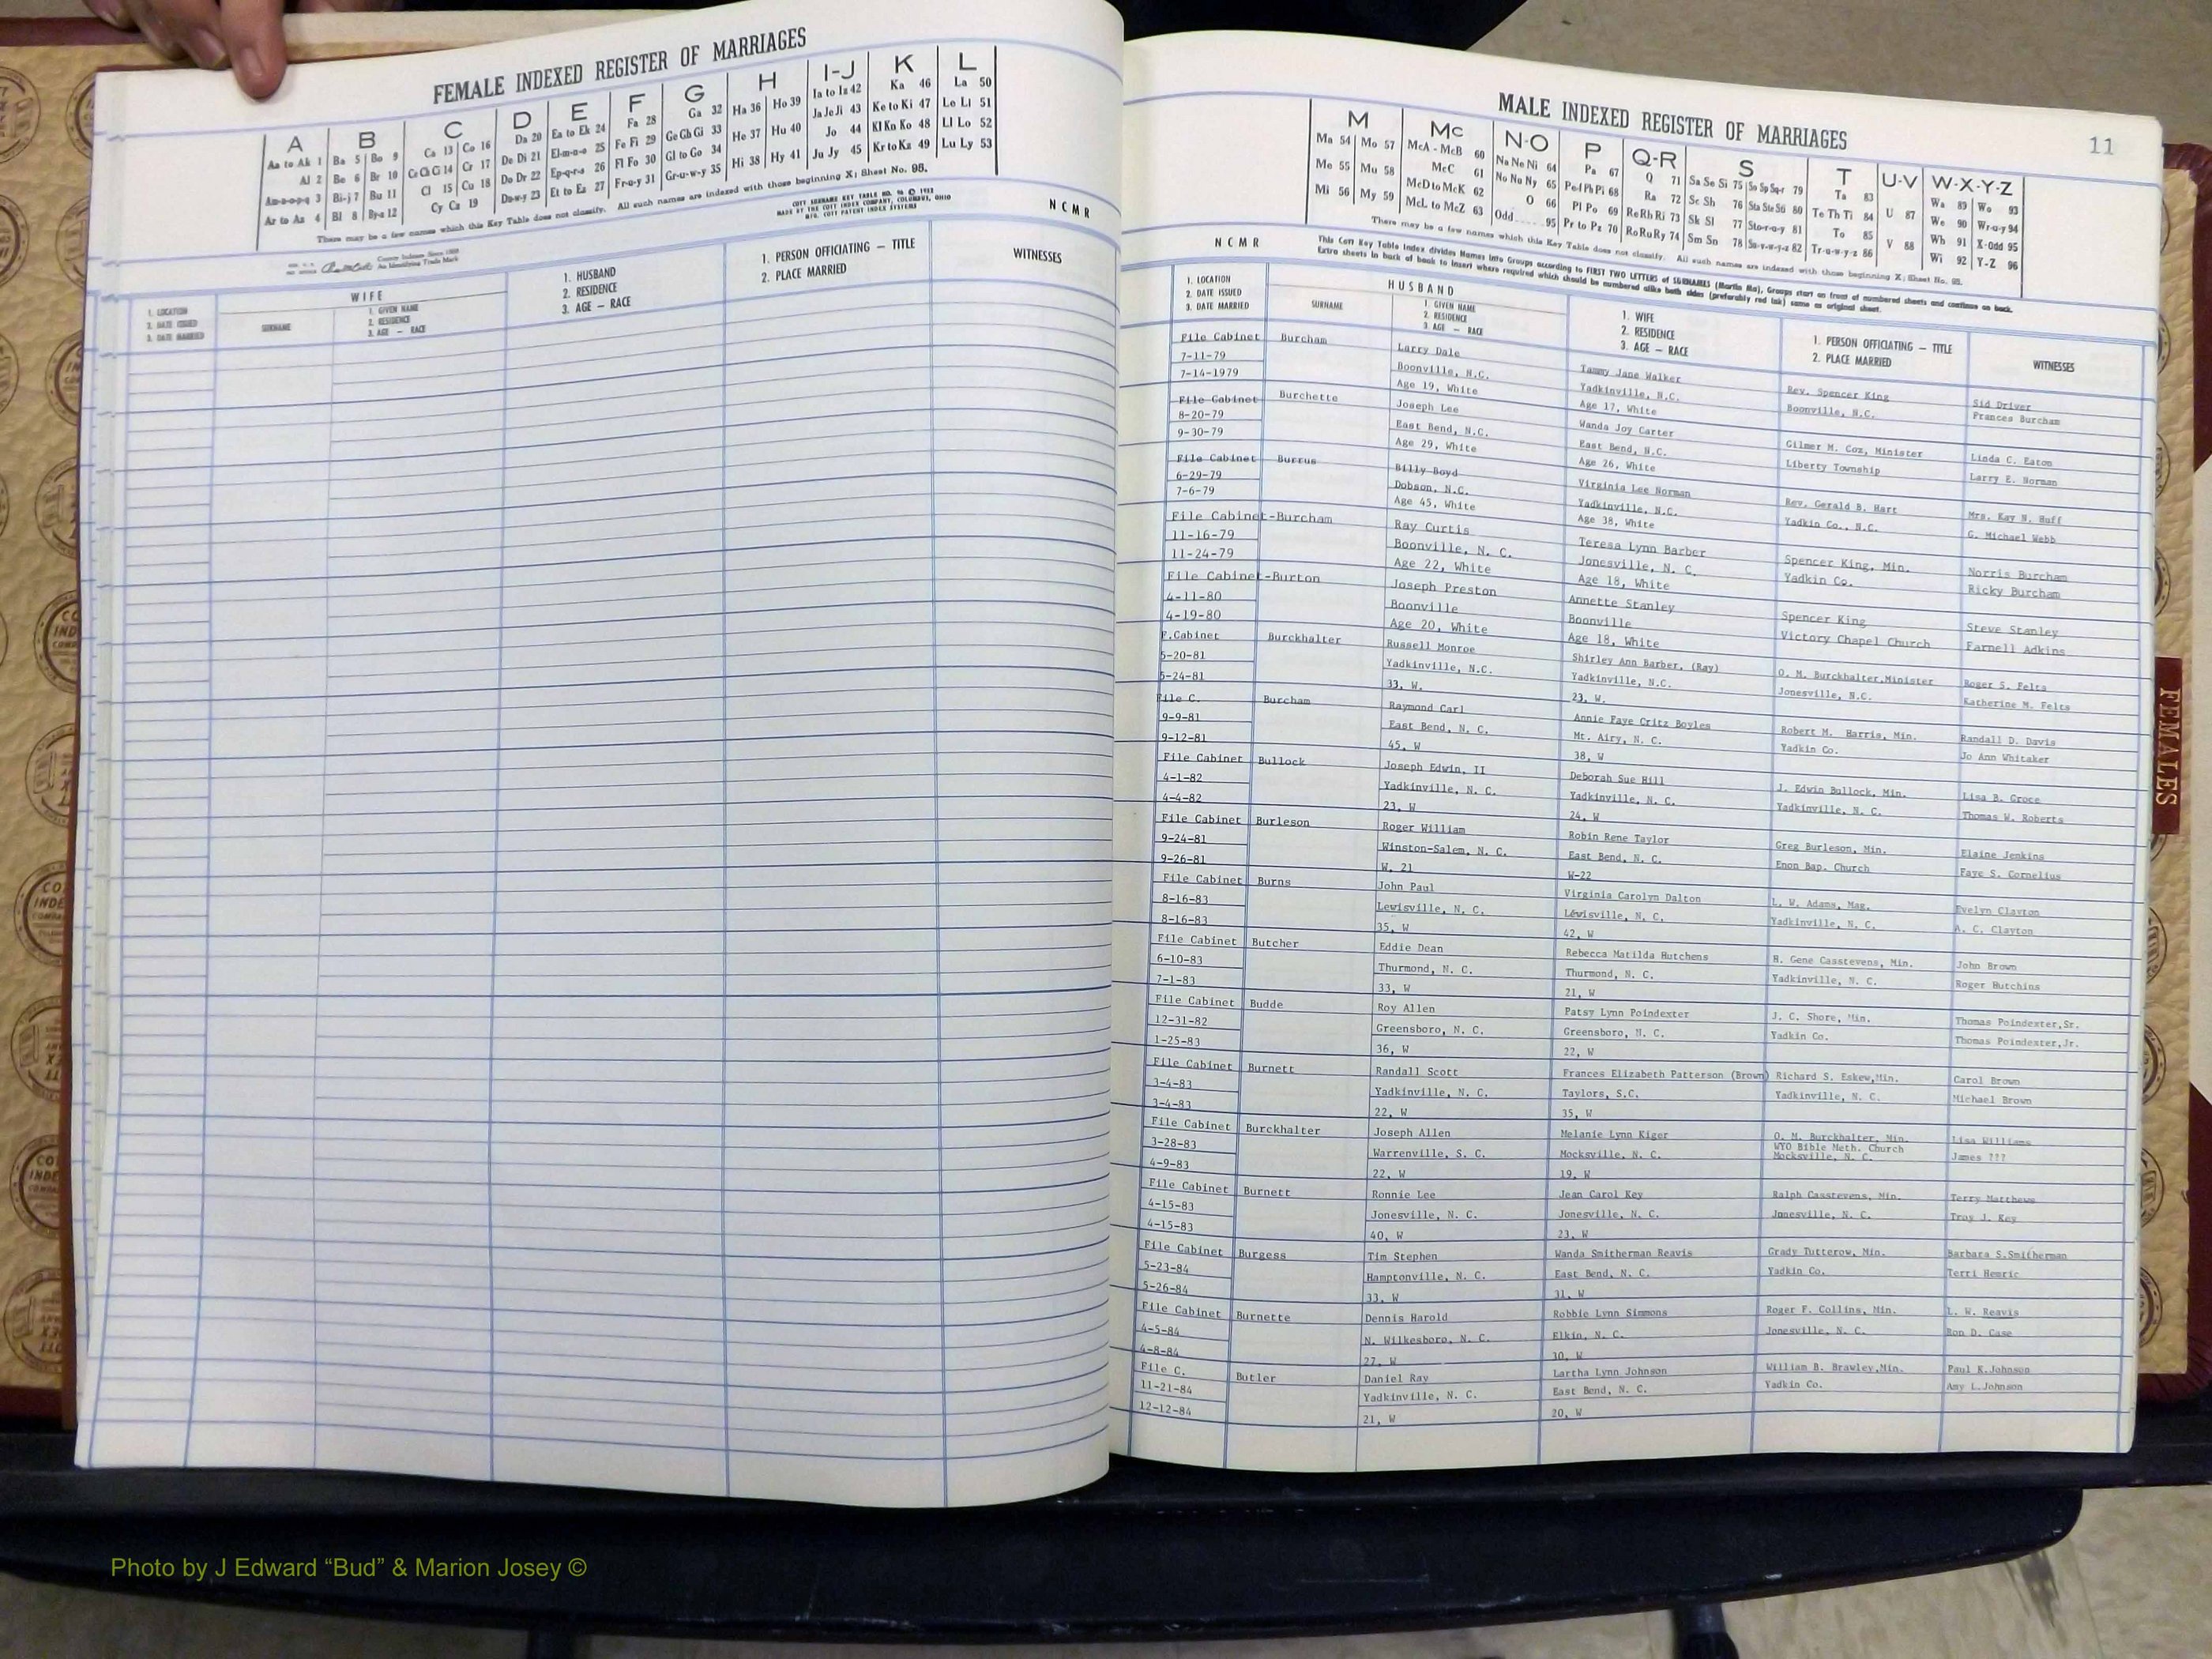 FEMALE INDEXED REGISTER OF MARRIAGES
A B C D E F G H I-J K L
Aa to Ak 1 Ba 5 Bo 9 Ca 13 Co 16 Da 20 Ea to Ek 24 Fa 28 Ga 32 Ha 36 Ho 39 Ia to Iz 42 Ka 46 La 50
Al 2 Be 6 Br 10 Ce Ch Ci 14 Cr 17 De Di 21 El-m-n-o 25 Fe Fi 29 Ge Gh Gi 33 He 37 Hu 40 Ja Je Ji 43 Ke to Ki 47 Le Li 51
Am-n-o-p-q 3 Bi-j 7 Bu 11 Cl 15 Cu 18 Do Dr 22 Ep-q-r-s 26 Fl Fo 30 Gl to Go 34 Hi 38 Hy 41 Jo 44 Kl Kn Ko 48 Ll Lo 52
Ar to Az 4 Bl 8 By-z 12 Cy Cz 19 Du-w-y 23 Et to Ez 27 Fr-u-y 31 Gr-u-w-y 35 Ju Jy 45 Kr to Kz 49 Lu Ly 53
There may be a few names which this Key Table does not classify. All such names are indexed with those beginning X; Sheet No. 95.
COTT SURNAME KEY TABLE NO. 96 © 1933
MADE BY THE COTT INDEX COMPANY, COLUMBUS, OHIO
MFG. COTT PATENT INDEX SYSTEMS
NCMR
County Indexes Since 1888
An Identifying Trade Mark
1. LOCATION
2. DATE ISSUED
3. DATE MARRIED
WIFE
SURNAME
1. GIVEN NAME
2. RESIDENCE
3. AGE — RACE
1. HUSBAND
2. RESIDENCE
3. AGE — RACE
1. PERSON OFFICIATING — TITLE
2. PLACE MARRIED
WITNESSES
MALE INDEXED REGISTER OF MARRIAGES
11
M Mc N-O P Q-R S T U-V W-X-Y-Z
Ma 54 Mo 57 McA - McB 60 Na Ne Ni 64 Pa 67 Q 71 Sa Se Si 75 So Sp Sq-r 79 Ta 83 U 87 Wa 89 Wo 93
Me 55 Mu 58 McC 61 No Nu Ny 65 Pe-f Ph Pi 68 Ra 72 Sc Sh 76 Sta Ste S6 80 Te Th Ti 84 V 88 We 90 Wr-u-y 94
Mi 56 My 59 McD to McK 62 O 66 Pl Po 69 Re Rh Ri 73 Sk Sl 77 Sto-r-u-y 81 To 85 Wh 91 X-Odd 95
McL to McZ 63 Odd 95 Pr to Pz 70 Ro Ru Ry 74 Sm Sn 78 Su-v-w-y-z 82 Tr-u-w-y-z 86 Wi 92 Y-Z 96
There may be a few names which this Key Table does not classify. All such names are indexed with those beginning X; Sheet No. 95.
NCMR
This Cott Key Table Index divides Names into Groups according to FIRST TWO LETTERS of SURNAMES (Martin Ma), Groups start on front of numbered sheets and continue on back.
Extra sheets in back of book to insert where required which should be numbered alike both sides (preferably red ink) same as original sheet.
1. LOCATION
2. DATE ISSUED
3. DATE MARRIED
HUSBAND
SURNAME
1. GIVEN NAME
2. RESIDENCE
3. AGE — RACE
1. WIFE
2. RESIDENCE
3. AGE — RACE
1. PERSON OFFICIATING — TITLE
2. PLACE MARRIED
WITNESSES
File Cabinet Burcham Larry Dale Tammy Jane Walker Rev. Spencer King Sid Driver
7-11-79 Boonville, N.C. Yadkinville, N.C. Boonville, N.C. Frances Burcham
7-14-1979 Age 19, White Age 17, White
File Cabinet Burchette Joseph Lee Wanda Joy Carter Gilmer M. Coz, Minister Linda C. Eaton
8-20-79 East Bend, N.C. East Bend, N.C. Liberty Township Larry E. Norman
9-30-79 Age 29, White Age 26, White
File Cabinet Burrus Billy Boyd Virginia Lee Norman Rev. Gerald B. Hart Mrs. Kay N. Huff
6-29-79 Dobson, N.C. Yadkinville, N.C. Yadkin Co., N.C. G. Michael Webb
7-6-79 Age 45, White Age 38, White
File Cabinet-Burcham Ray Curtis Teresa Lynn Barber Spencer King, Min. Norris Burcham
11-16-79 Boonville, N. C. Jonesville, N. C. Yadkin Co. Ricky Burcham
11-24-79 Age 22, White Age 18, White
File Cabinet-Burton Joseph Preston Annette Stanley Spencer King Steve Stanley
4-11-80 Boonville Boonville Victory Chapel Church Farnell Adkins
4-19-80 Age 20, White Age 18, White
F.Cabinet Burckhalter Russell Monroe Shirley Ann Barber, (Ray) O. M. Burckhalter,Minister Roger S. Felts
5-20-81 Yadkinville, N.C. Yadkinville, N.C. Jonesville, N.C. Katherine M. Felts
5-24-81 33, W. 23, W.
File C. Burcham Raymond Carl Annie Faye Critz Boyles Robert M. Harris, Min. Randall D. Davis
9-9-81 East Bend, N. C. Mt. Airy, N. C. Yadkin Co. Jo Ann Whitaker
9-12-81 45, W 38, W
File Cabinet Bullock Joseph Edwin, II Deborah Sue Hill J. Edwin Bullock, Min. Lisa B. Groce
4-1-82 Yadkinville, N. C. Yadkinville, N. C. Yadkinville, N. C. Thomas W. Roberts
4-4-82 23, W 24, W
File Cabinet Burleson Roger William Robin Rene Taylor Greg Burleson, Min. Elaine Jenkins
9-24-81 Winston-Salem, N. C. East Bend, N. C. Enon Bap. Church Faye S. Cornelius
9-26-81 W, 21 W-22
File Cabinet Burns John Paul Virginia Carolyn Dalton L. W. Adams, Mag. Evelyn Clayton
8-16-83 Lewisville, N. C. Lewisville, N. C. Yadkinville, N. C. A. C. Clayton
8-16-83 35, W 42, W
File Cabinet Butcher Eddie Dean Rebecca Matilda Hutchens H. Gene Casstevens, Min. John Brown
6-10-83 Thurmond, N. C. Thurmond, N. C. Yadkinville, N. C. Roger Hutchins
7-1-83 33, W 21, W
File Cabinet Budde Roy Allen Patsy Lynn Poindexter J. C. Shore, Min. Thomas Poindexter,Sr.
12-31-82 Greensboro, N. C. Greensboro, N. C. Yadkin Co. Thomas Poindexter,Jr.
1-25-83 36, W 22, W
File Cabinet Burnett Randall Scott Frances Elizabeth Patterson (Brown) Richard S. Eskew,Min. Carol Brown
3-4-83 Yadkinville, N. C. Taylors, S.C. Yadkinville, N. C. Michael Brown
3-4-83 22, W 35, W
File Cabinet Burckhalter Joseph Allen Melanie Lynn Kiger O. M. Burckhalter, Min. Lisa Williams
3-28-83 Warrenville, S. C. Mocksville, N. C. WYO Bible Meth. Church James ???
Mocksville, N. C.
4-9-83 22, W 19, W
File Cabinet Burnett Ronnie Lee Jean Carol Key Ralph Casstevens, Min. Terry Matthews
4-15-83 Jonesville, N. C. Jonesville, N. C. Jonesville, N. C. Troy J. Key
4-15-83 40, W 23, W
File Cabinet Burgess Tim Stephen Wanda Smitherman Reavis Grady Tutterow, Min. Barbara S.Smitherman
5-23-84 Hamptonville, N. C. East Bend, N. C. Yadkin Co. Terri Hemric
5-26-84 33, W 31, W
File Cabinet Burnette Dennis Harold Robbie Lynn Simmons Roger F. Collins, Min. L. W. Reavis
4-5-84 N. Wilkesboro, N. C. Elkin, N. C. Jonesville, N. C. Ron D. Case
4-8-84 27, W 30, W
File C. Butler Daniel Ray Lartha Lynn Johnson William B. Brawley,Min. Paul K.Johnson
11-21-84 Yadkinville, N. C. East Bend, N. C. Yadkin Co. Amy L.Johnson
12-12-84 21, W 20, W
FEMALES
Photo by J Edward “Bud” & Marion Josey ©